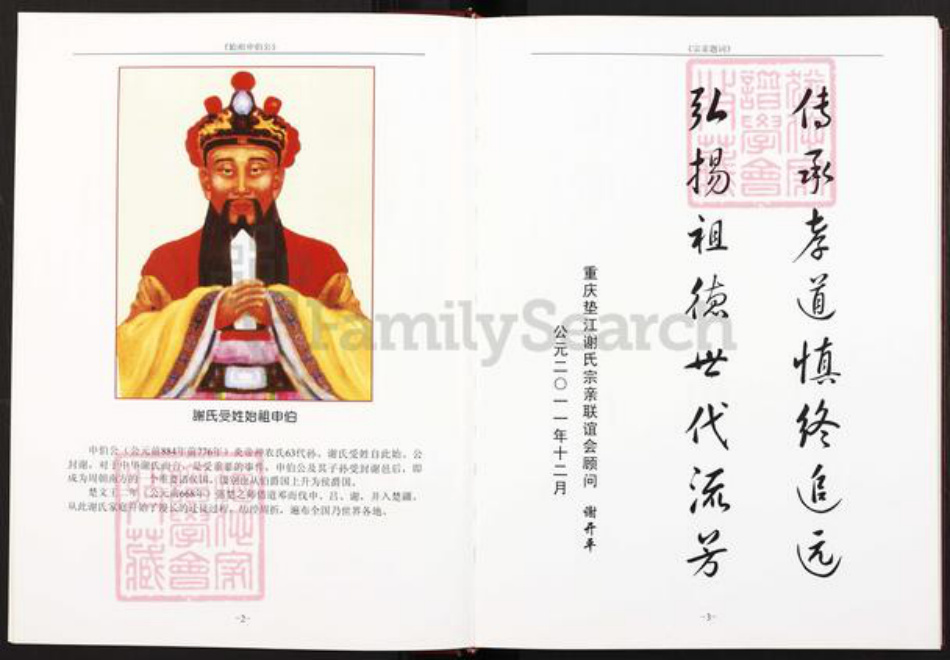 《始祖申伯公》
謝氏受姓始祖申伯
申伯公（公元前884年前776年）炎帝神农氏63代孙。谢氏受姓自此始。公
封谢，对于中华谢氏而言，是受重要的事件。申伯公及其子孙受封谢邑后，即
成为周朝南方的一个重要诸侯国，
楚文王二年（公元前668年）借道邓而伐申、吕、谢，并入楚疆，
从此谢氏家庭开始了漫长的迁徒过程，历经周折，遍布全国乃世界各地。
-2-
《宗亲题词》
传承孝道慎终追远
弘扬祖德世代流芳
重庆垫江谢氏宗亲联谊会顾问 谢开平
公元二〇一一年十二月
-3-
FamilySearch